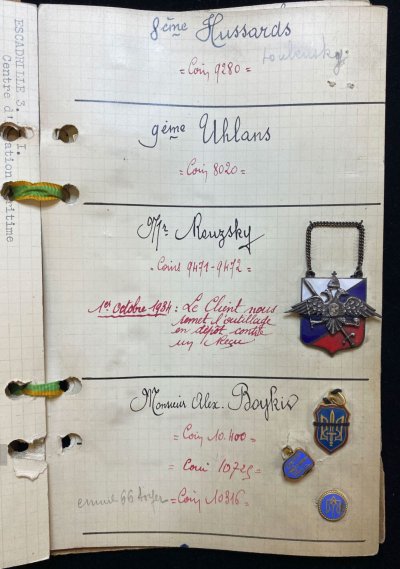 ESCADRILLE 3.
Centre d'
8ème Hussards
= Coin 9280 =
9ème Uhlans
= Coin 8020 =
Mr Rouzsky
= Coins 9471-9472 =
1er Octobre 1934 : Le Client nous
remet l'outillage
en dépôt contre
un Reçu
Monsieur Alex. Boykiv
= Coin 10.400 =
= Coin 10725 =
= Coin 10316 =